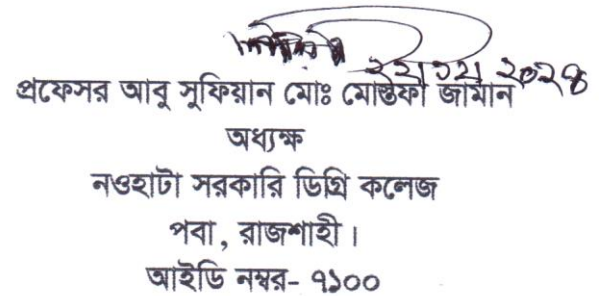 প্রফেসর আবু সুফিয়ান মোঃ মোস্তফা জামান
অধ্যক্ষ
নওহাটা সরকারি ডিগ্রি কলেজ
পবা, রাজশাহী।
আইডি নম্বর- ৭১০০